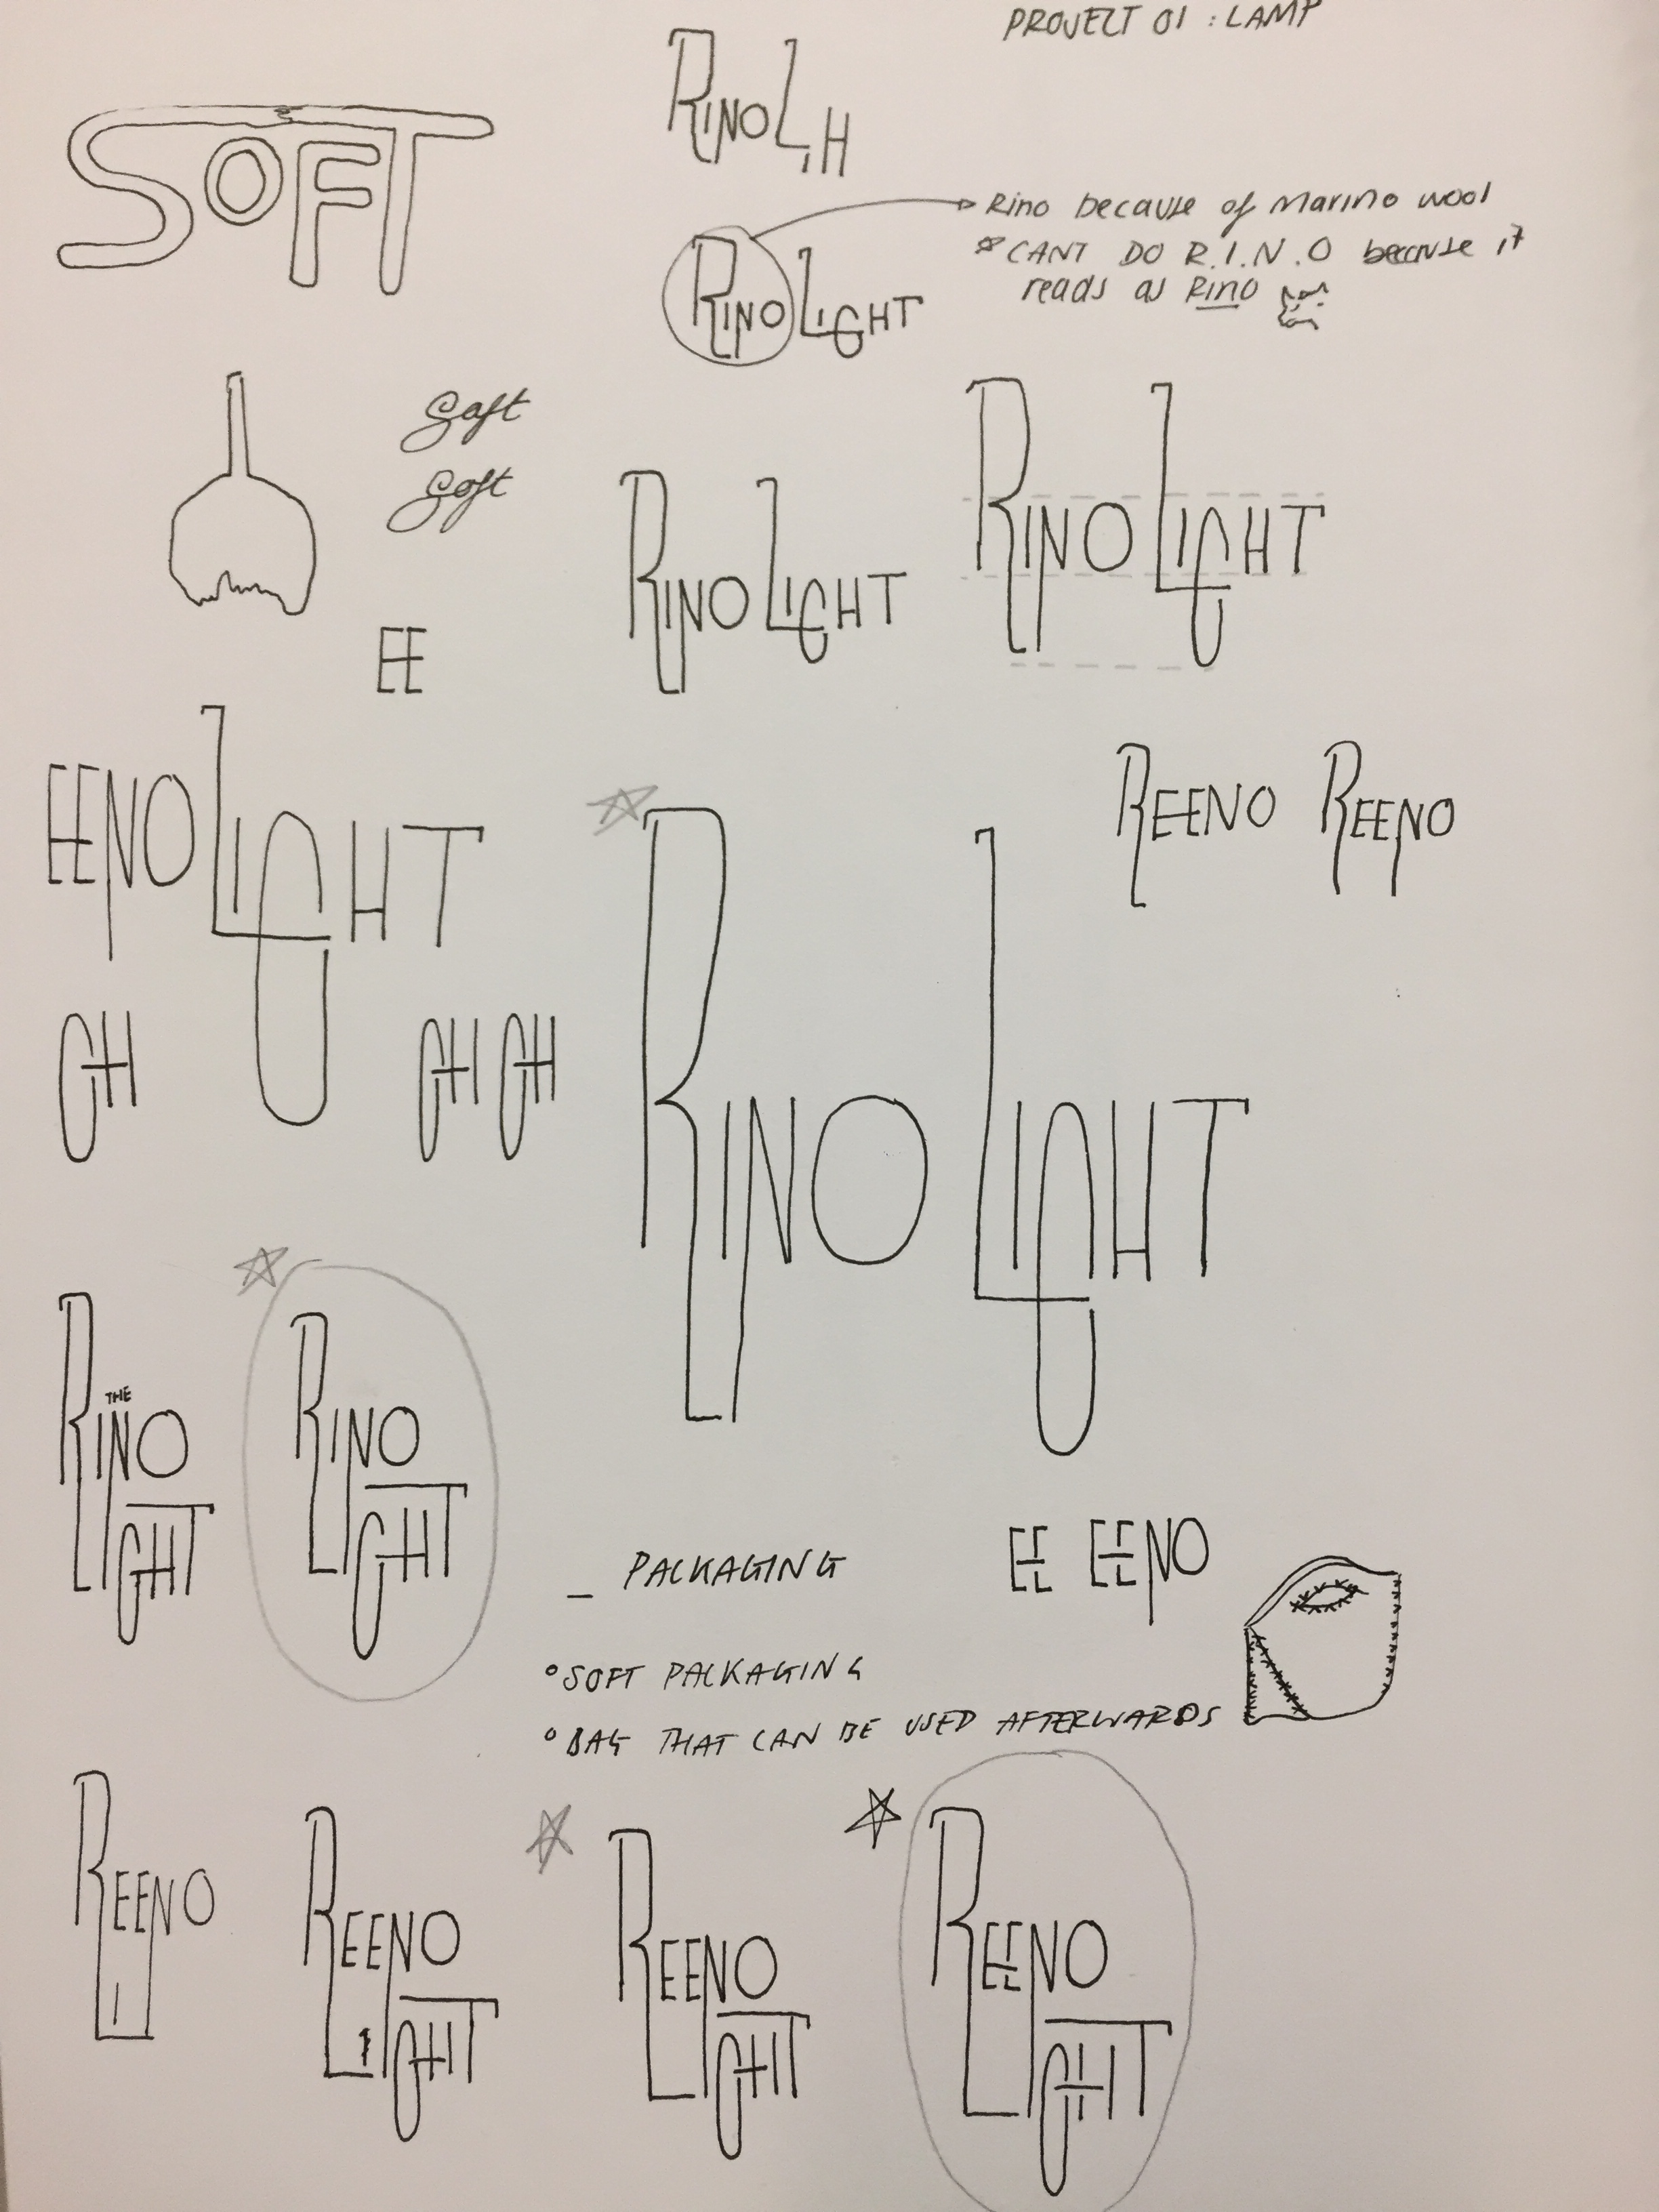 PROJECT 01 : LAMP
SOFT
RINO L I H
Rino because of Marino wool
*CANT DO R.I.N.O because it
reads as Rino
RINO LIGHT
Soft
Soft
RINO LIGHT
RINO LIGHT
EE
EENO LIGHT
REENO REENO
RINO LIGHT
GH
GH GH
THE
RINO
LIGHT
RINO
LIGHT
_ PACKAGING
EE EENO
°SOFT PACKAGING
°BAG THAT CAN BE USED AFTERWARDS
REENO
LI
REENO
LIGHT
REENO
LIGHT
REENO
LIGHT